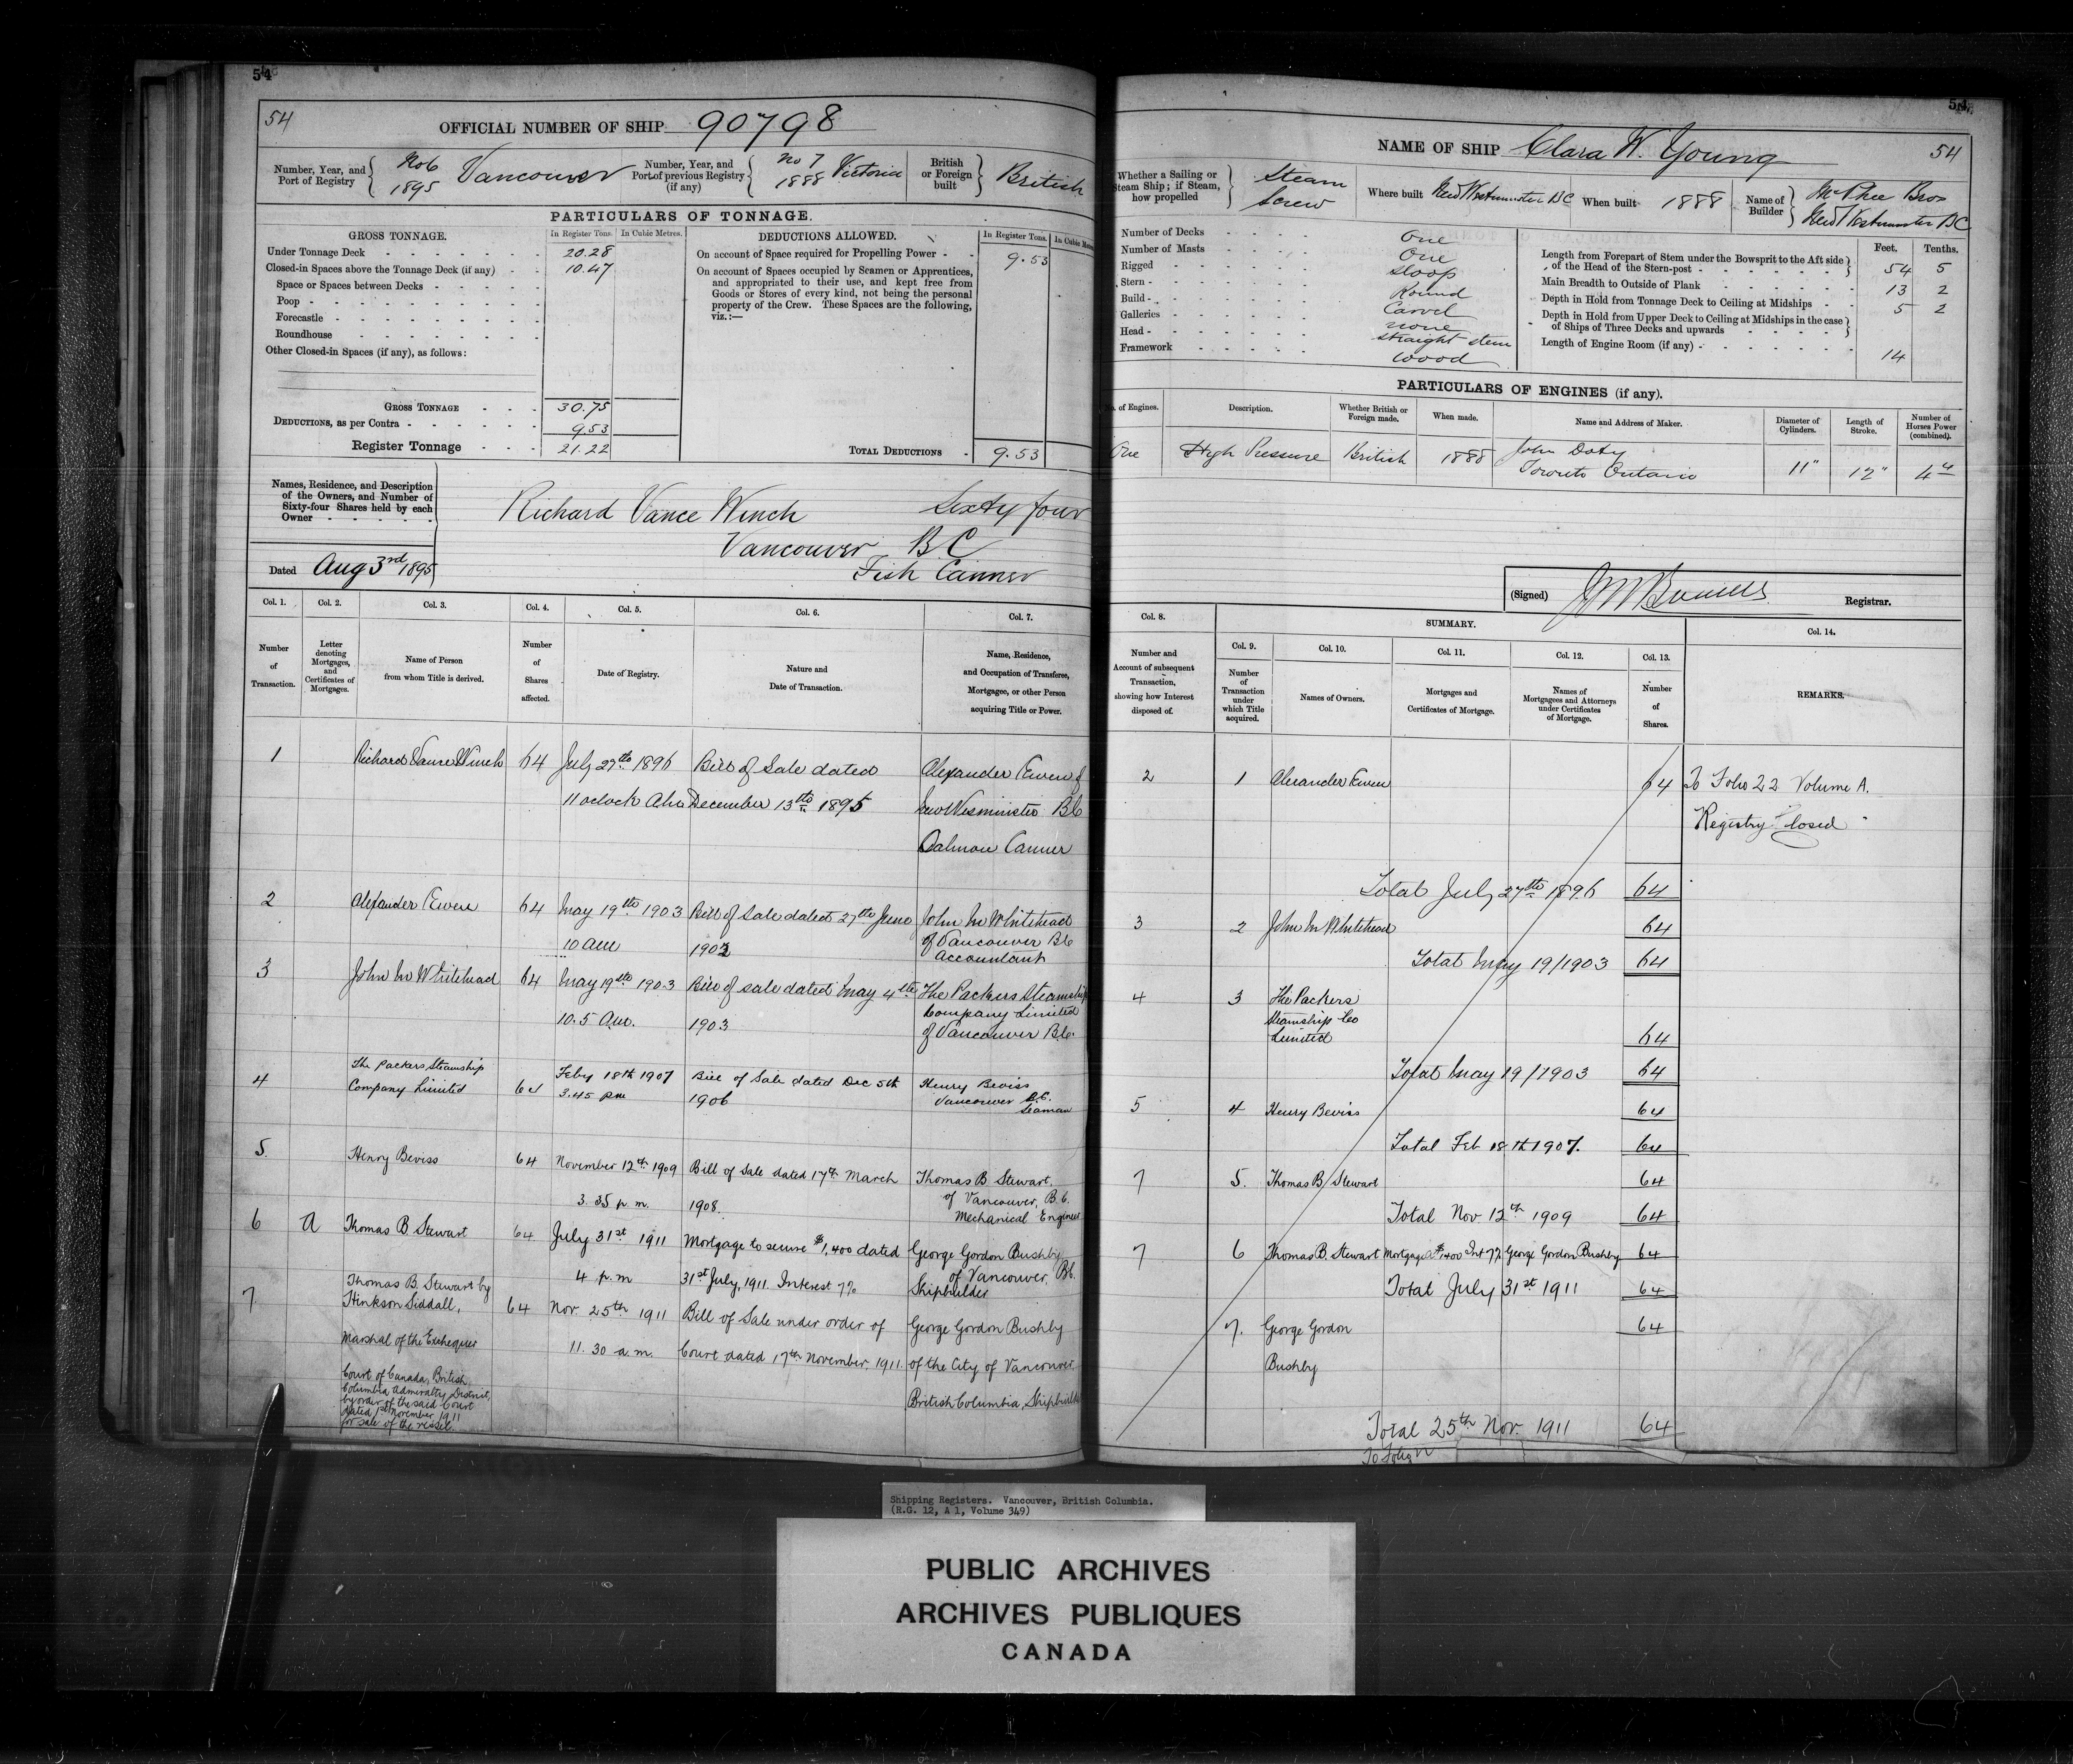 54
54
OFFICIAL NUMBER OF SHIP 90798
Number, Year, and Port of Registry
No 6 1895 Vancouver
Number, Year, and Port of previous Registry (if any)
No 7 1888 Victoria
British or Foreign built
British
PARTICULARS OF TONNAGE.
GROSS TONNAGE. In Register Tons. In Cubic Metres.
Under Tonnage Deck 20.28
Closed-in Spaces above the Tonnage Deck (if any) 10.47
Space or Spaces between Decks
Poop
Forecastle
Roundhouse
Other Closed-in Spaces (if any), as follows:
GROSS TONNAGE 30.75
DEDUCTIONS, as per Contra 9.53
Register Tonnage 21.22
DEDUCTIONS ALLOWED. In Register Tons. In Cubic
On account of Space required for Propelling Power 9.53
On account of Spaces occupied by Seamen or Apprentices,
and appropriated to their use, and kept free from
Goods or Stores of every kind, not being the personal
property of the Crew. These Spaces are the following,
viz.:—
TOTAL DEDUCTIONS 9.53
Names, Residence, and Description
of the Owners, and Number of
Sixty-four Shares held by each
Owner
Richard Vance Winch Sixty four
Vancouver B.C
Fish Canner
Dated Aug 3rd 1895
Col. 1. Col. 2. Col. 3. Col. 4. Col. 5. Col. 6. Col. 7.
Number of Transaction.
Letter denoting Mortgages, and Certificates of Mortgages.
Name of Person from whom Title is derived.
Number of Shares affected.
Date of Registry.
Nature and Date of Transaction.
Name, Residence, and Occupation of Transferee, Mortgagee, or other Person acquiring Title or Power.
1 Richard Vance Winch 64 July 27th 1896 Bill of Sale dated Alexander Ewen of
11 oclock December 13th 1895 New Wesminister B.C
Salmon Canner
2 Alexander Ewen 64 May 19th 1903 Bill of Sale dated 27th June John M Whitehead
10 am 1902 of Vancouver B.C
Accountant
3 John M Whitehead 64 May 19th 1903 Bill of sale dated May 4th The Packers Steamship
10.5 am. 1903 Company Limited
of Vancouver B.C.
4 The Packers Steamship Company Limited 64 Feby 18th 1907 Bill of Sale dated Dec 5th Henry Beviss
3.45 pm 1906 Vancouver B.C.
Seaman
5. Henry Beviss 64 November 12th 1909 Bill of Sale dated 17th March Thomas B Stewart,
3.35 p.m. 1908. of Vancouver, B.C.
Mechanical Engineer
6 A Thomas B. Stewart 64 July 31st 1911 Mortgage to secure $1,400 dated George Gordon Bushby
4 p.m 31st July, 1911. Interest 7% of Vancouver, B.C.
Shipbuilder
7 Thomas B. Stewart by
Hinkson Siddall, 64 Nov. 25th 1911 Bill of Sale under order of George Gordon Bushby
Marshal of the Exchequer 11.30 a.m. Court dated 17th November, 1911. of the City of Vancouver,
Court of Canada, British British Columbia, Shipbuilder
Columbia Admiralty District,
by order of the said Court
dated 1st November 1911
for sale of the vessel.
54
NAME OF SHIP Clara W. Young 54
Whether a Sailing or Steam Ship; if Steam, how propelled
Steam Screw
Where built New Westminster BC
When built 1888
Name of Builder
McPhee Bros
New Westminster BC
Number of Decks One
Number of Masts One
Rigged Sloop
Stern Round
Build Carvel
Galleries none
Head straight stem
Framework wood
Feet. Tenths.
Length from Forepart of Stem under the Bowsprit to the Aft side of the Head of the Stern-post 54 5
Main Breadth to Outside of Plank 13 2
Depth in Hold from Tonnage Deck to Ceiling at Midships 5 2
Depth in Hold from Upper Deck to Ceiling at Midships in the case of Ships of Three Decks and upwards
Length of Engine Room (if any) 14
PARTICULARS OF ENGINES (if any).
of Engines. Description. Whether British or Foreign made. When made. Name and Address of Maker. Diameter of Cylinders. Length of Stroke. Number of Horses Power (combined).
One High Pressure British 1888 John Doty
Toronto Ontario 11" 12" 4
(Signed) Registrar.
Col. 8. SUMMARY. Col. 14.
Col. 9. Col. 10. Col. 11. Col. 12. Col. 13.
Number and Account of subsequent Transaction, showing how Interest disposed of.
Number of Transaction under which Title acquired.
Names of Owners.
Mortgages and Certificates of Mortgage.
Names of Mortgagees and Attorneys under Certificates of Mortgage.
Number of Shares.
REMARKS.
2 1 Alexander Ewen 64 To Folio 22 Volume A.
Registry Closed
Total July 27th 1896 64
3 2 John M Whitehead 64
Total May 19/1903 64
4 3 The Packers
Steamship Co
Limited 64
Total May 19/1903 64
5 4 Henry Beviss 64
Total Feb 18th 1907. 64
7 5. Thomas B Stewart 64
Total Nov. 12th 1909 64
7 6 Thomas B. Stewart Mortgage A $1400 Int 7% George Gordon Bushby 64
Total July 31st 1911 64
7. George Gordon 64
Bushby
Total 25th Nov. 1911 64
To Folio
Shipping Registers. Vancouver, British Columbia.
(R.G. 12, A 1, Volume 349)
PUBLIC ARCHIVES
ARCHIVES PUBLIQUES
CANADA